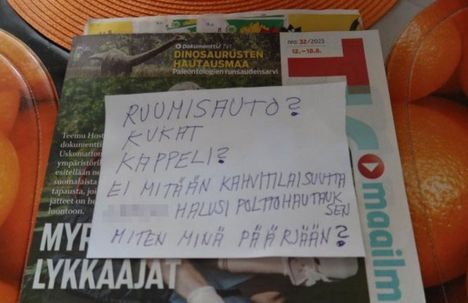 Dokumentti/
DINOSAURUSTEN
HAUTAUSMAA
Paleontologien runsaudensarvi
nro: 32/2023
12.–18.8.
Teemu
dokumentti
ympäristöri
esitellään
suomalaista
tapausta,
jätteet on
luontoon.
maailm
RUUMISAUTO?
KUKAT
KAPPELI?
EI MITÄÄN KAHVITILAISUUTTA
HALUSI POLTTOHAUTAUK
SEN
MITEN MINÄ PÄÄRJÄÄN?
MYR
LYKKAAJAT